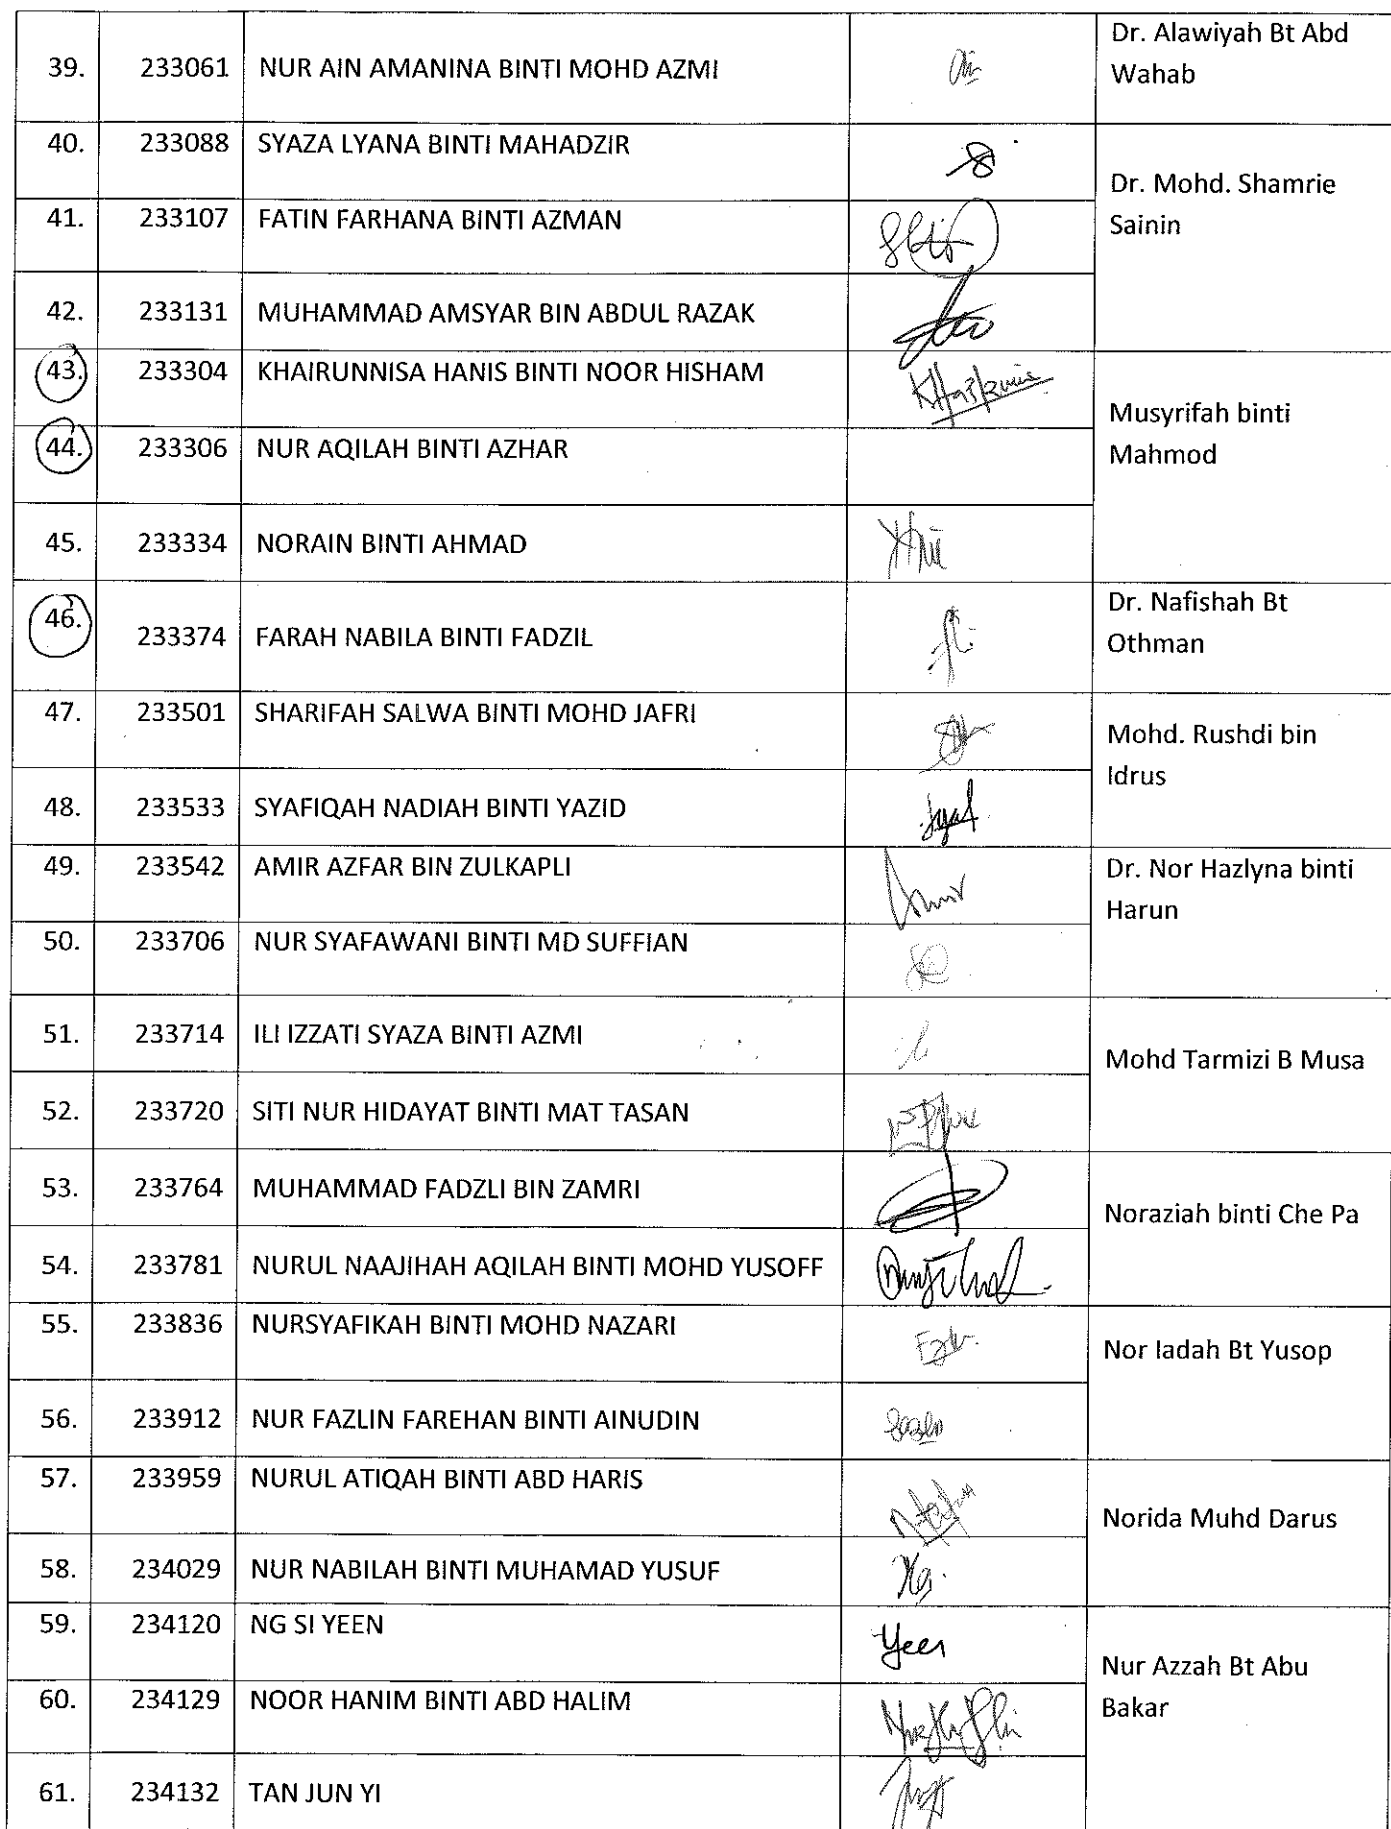 39. 233061 NUR AIN AMANINA BINTI MOHD AZMI Dr. Alawiyah Bt Abd
Wahab
40. 233088 SYAZA LYANA BINTI MAHADZIR Dr. Mohd. Shamrie
Sainin
41. 233107 FATIN FARHANA BINTI AZMAN
42. 233131 MUHAMMAD AMSYAR BIN ABDUL RAZAK
43. 233304 KHAIRUNNISA HANIS BINTI NOOR HISHAM Musyrifah binti
Mahmod
44. 233306 NUR AQILAH BINTI AZHAR
45. 233334 NORAIN BINTI AHMAD
46. 233374 FARAH NABILA BINTI FADZIL Dr. Nafishah Bt
Othman
47. 233501 SHARIFAH SALWA BINTI MOHD JAFRI Mohd. Rushdi bin
Idrus
48. 233533 SYAFIQAH NADIAH BINTI YAZID Syaf
49. 233542 AMIR AZFAR BIN ZULKAPLI Dr. Nor Hazlyna binti
Harun
50. 233706 NUR SYAFAWANI BINTI MD SUFFIAN
51. 233714 ILI IZZATI SYAZA BINTI AZMI Mohd Tarmizi B Musa
52. 233720 SITI NUR HIDAYAT BINTI MAT TASAN
53. 233764 MUHAMMAD FADZLI BIN ZAMRI Noraziah binti Che Pa
54. 233781 NURUL NAAJIHAH AQILAH BINTI MOHD YUSOFF
55. 233836 NURSYAFIKAH BINTI MOHD NAZARI Nor Iadah Bt Yusop
56. 233912 NUR FAZLIN FAREHAN BINTI AINUDIN
57. 233959 NURUL ATIQAH BINTI ABD HARIS Norida Muhd Darus
58. 234029 NUR NABILAH BINTI MUHAMAD YUSUF
59. 234120 NG SI YEEN Yeen Nur Azzah Bt Abu
Bakar
60. 234129 NOOR HANIM BINTI ABD HALIM
61. 234132 TAN JUN YI